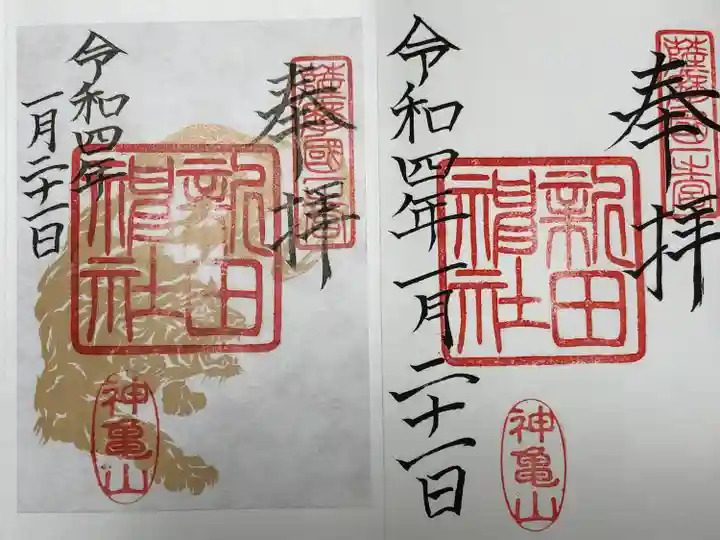 奉拝
新田神社
神亀山
令和四年
一月二十一日
奉拝
新田神社
神亀山
令和四年一月二十一日